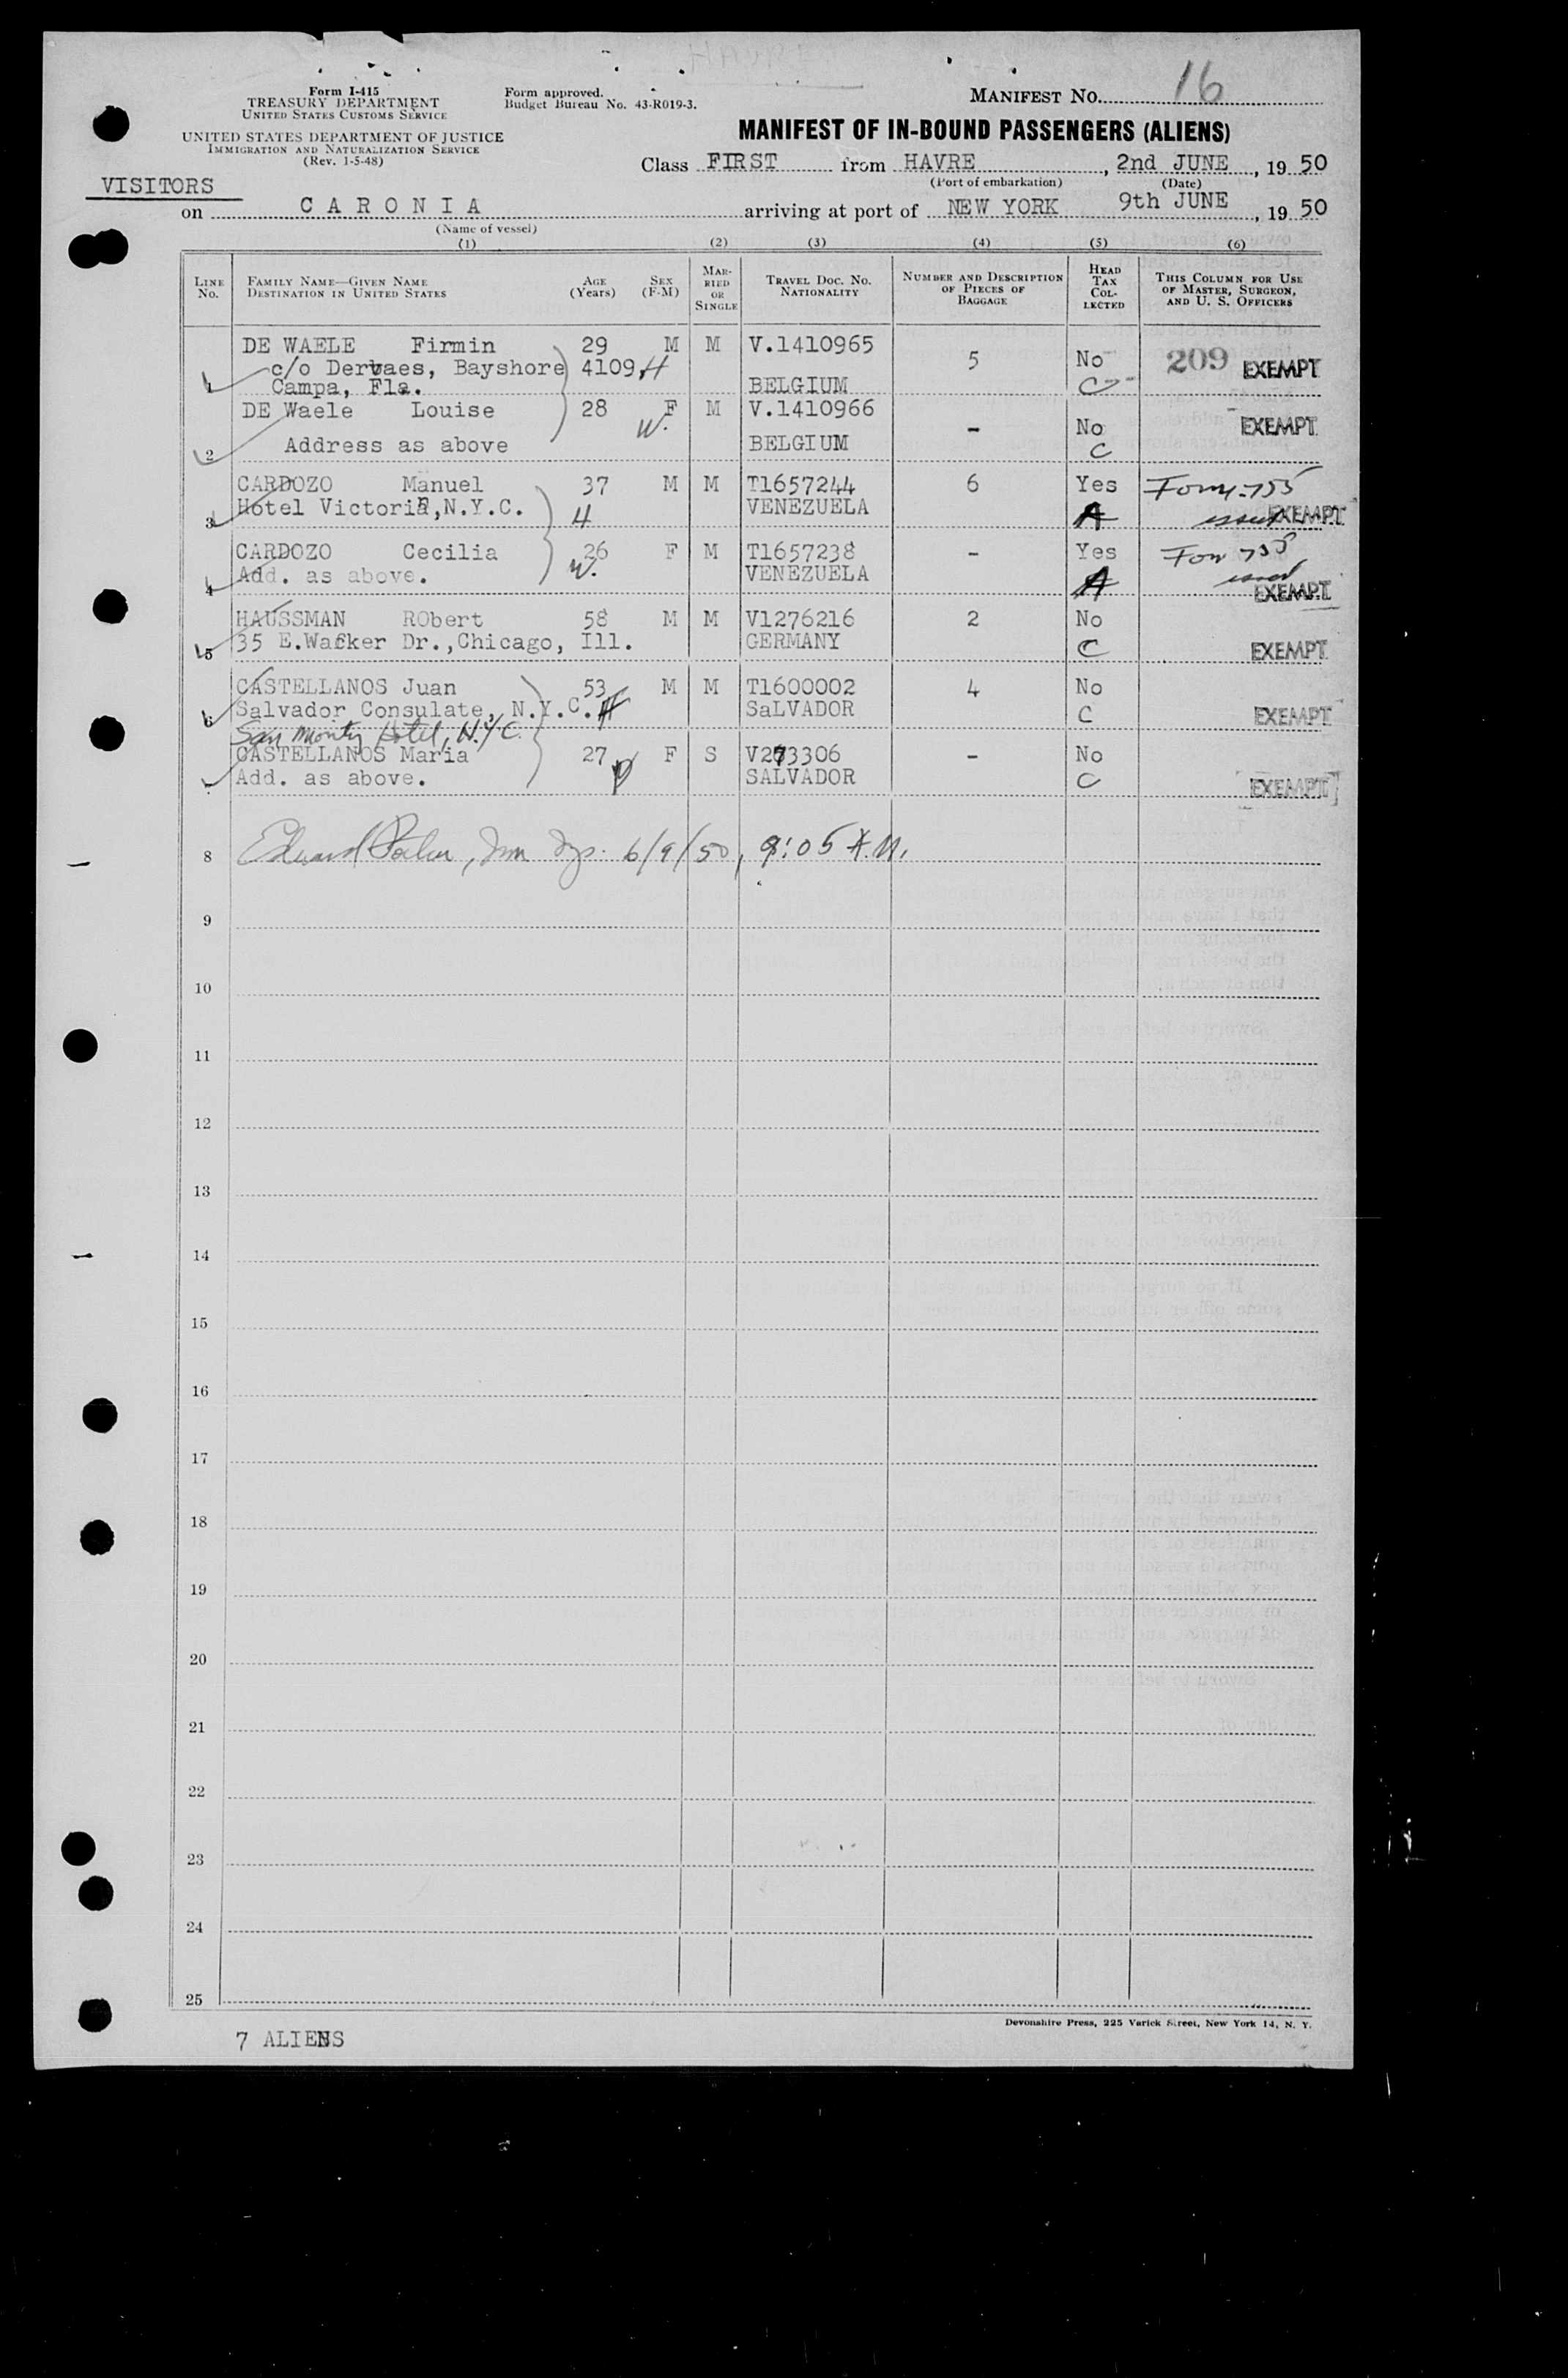 16
Form I-415
TREASURY DEPARTMENT
UNITED STATES CUSTOMS SERVICE
UNITED STATES DEPARTMENT OF JUSTICE
IMMIGRATION AND NATURALIZATION SERVICE
(Rev. 1-5-48)
Form approved.
Budget Bureau No. 43-R019-3.
MANIFEST NO.
MANIFEST OF IN-BOUND PASSENGERS (ALIENS)
Class FIRST from HAVRE, 2nd JUNE, 19 50
(Port of embarkation) (Date)
VISITORS
on CARONIA arriving at port of NEW YORK 9th JUNE, 19 50
(Name of vessel)
(1) (2) (3) (4) (5) (6)
LINE No. FAMILY NAME—GIVEN NAME DESTINATION IN UNITED STATES AGE (Years) SEX (F-M) MARRIED OR SINGLE TRAVEL DOC. NO. NATIONALITY NUMBER AND DESCRIPTION OF PIECES OF BAGGAGE HEAD TAX COLLECTED THIS COLUMN FOR USE OF MASTER, SURGEON, AND U. S. OFFICERS
DE WAELE Firmin 29 M M V.1410965 5 No 209 EXEMPT
c/o Dervaes, Bayshore 4109, H
1 Campa, Fla. BELGIUM C
DE Waele Louise 28 F M V.1410966 - No EXEMPT
W.
2 Address as above BELGIUM C
CARDOZO Manuel 37 M M T1657244 6 Yes Form 755
3 Hotel Victoria, N.Y.C. H VENEZUELA A issued EXEMPT
CARDOZO Cecilia 26 F M T1657238 - Yes Form 755
4 Add. as above. W. VENEZUELA A issued EXEMPT
HAUSSMAN RObert 58 M M V1276216 2 No
5 35 E.Wacker Dr.,Chicago, Ill. GERMANY C EXEMPT
CASTELLANOS Juan 53 M M T1600002 4 No
6 Salvador Consulate, N.Y.C. H SaLVADOR C EXEMPT
San Monty Hotel, N.Y.C.
CASTELLANOS Maria 27 F S V273306 - No
Add. as above. D SALVADOR C EXEMPT
8 Edward Imm Ins. 6/9/50, 9:05 A.M.
9
10
11
12
13
14
15
16
17
18
19
20
21
22
23
24
25
Devonshire Press, 225 Varick Street, New York 14, N. Y.
7 ALIENS